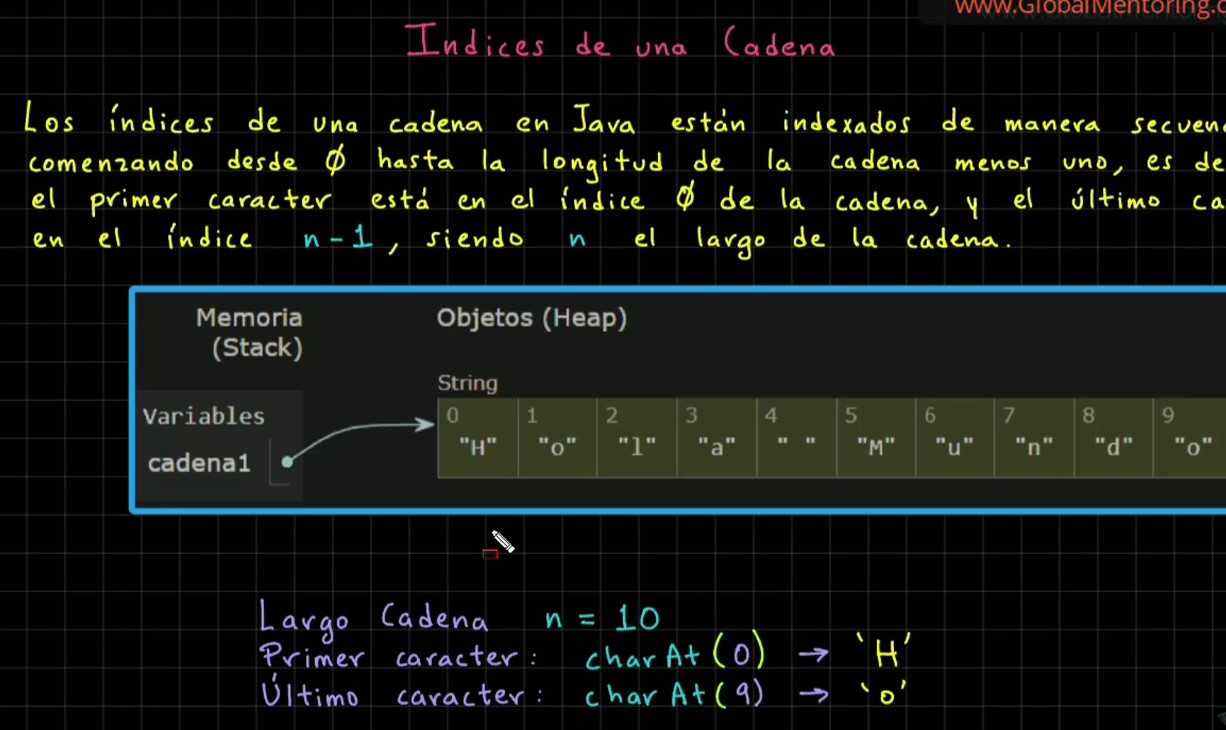 www.GlobalMentoring.c
Indices de una Cadena
Los índices de una cadena en Java están indexados de manera
comenzando desde 0 hasta la longitud de la cadena menos uno, es
el primer caracter está en el índice 0 de la cadena, y el último
en el índice n-1, siendo n el largo de la cadena.
Memoria
(Stack)
Objetos (Heap)
String
Variables
cadena1
0 1 2 3 4 5 6 7 8 9
"H" "o" "l" "a" " " "M" "u" "n" "d" "o"
Largo Cadena n = 10
Primer caracter: charAt(0) → 'H'
Último caracter: charAt(9) → 'o'